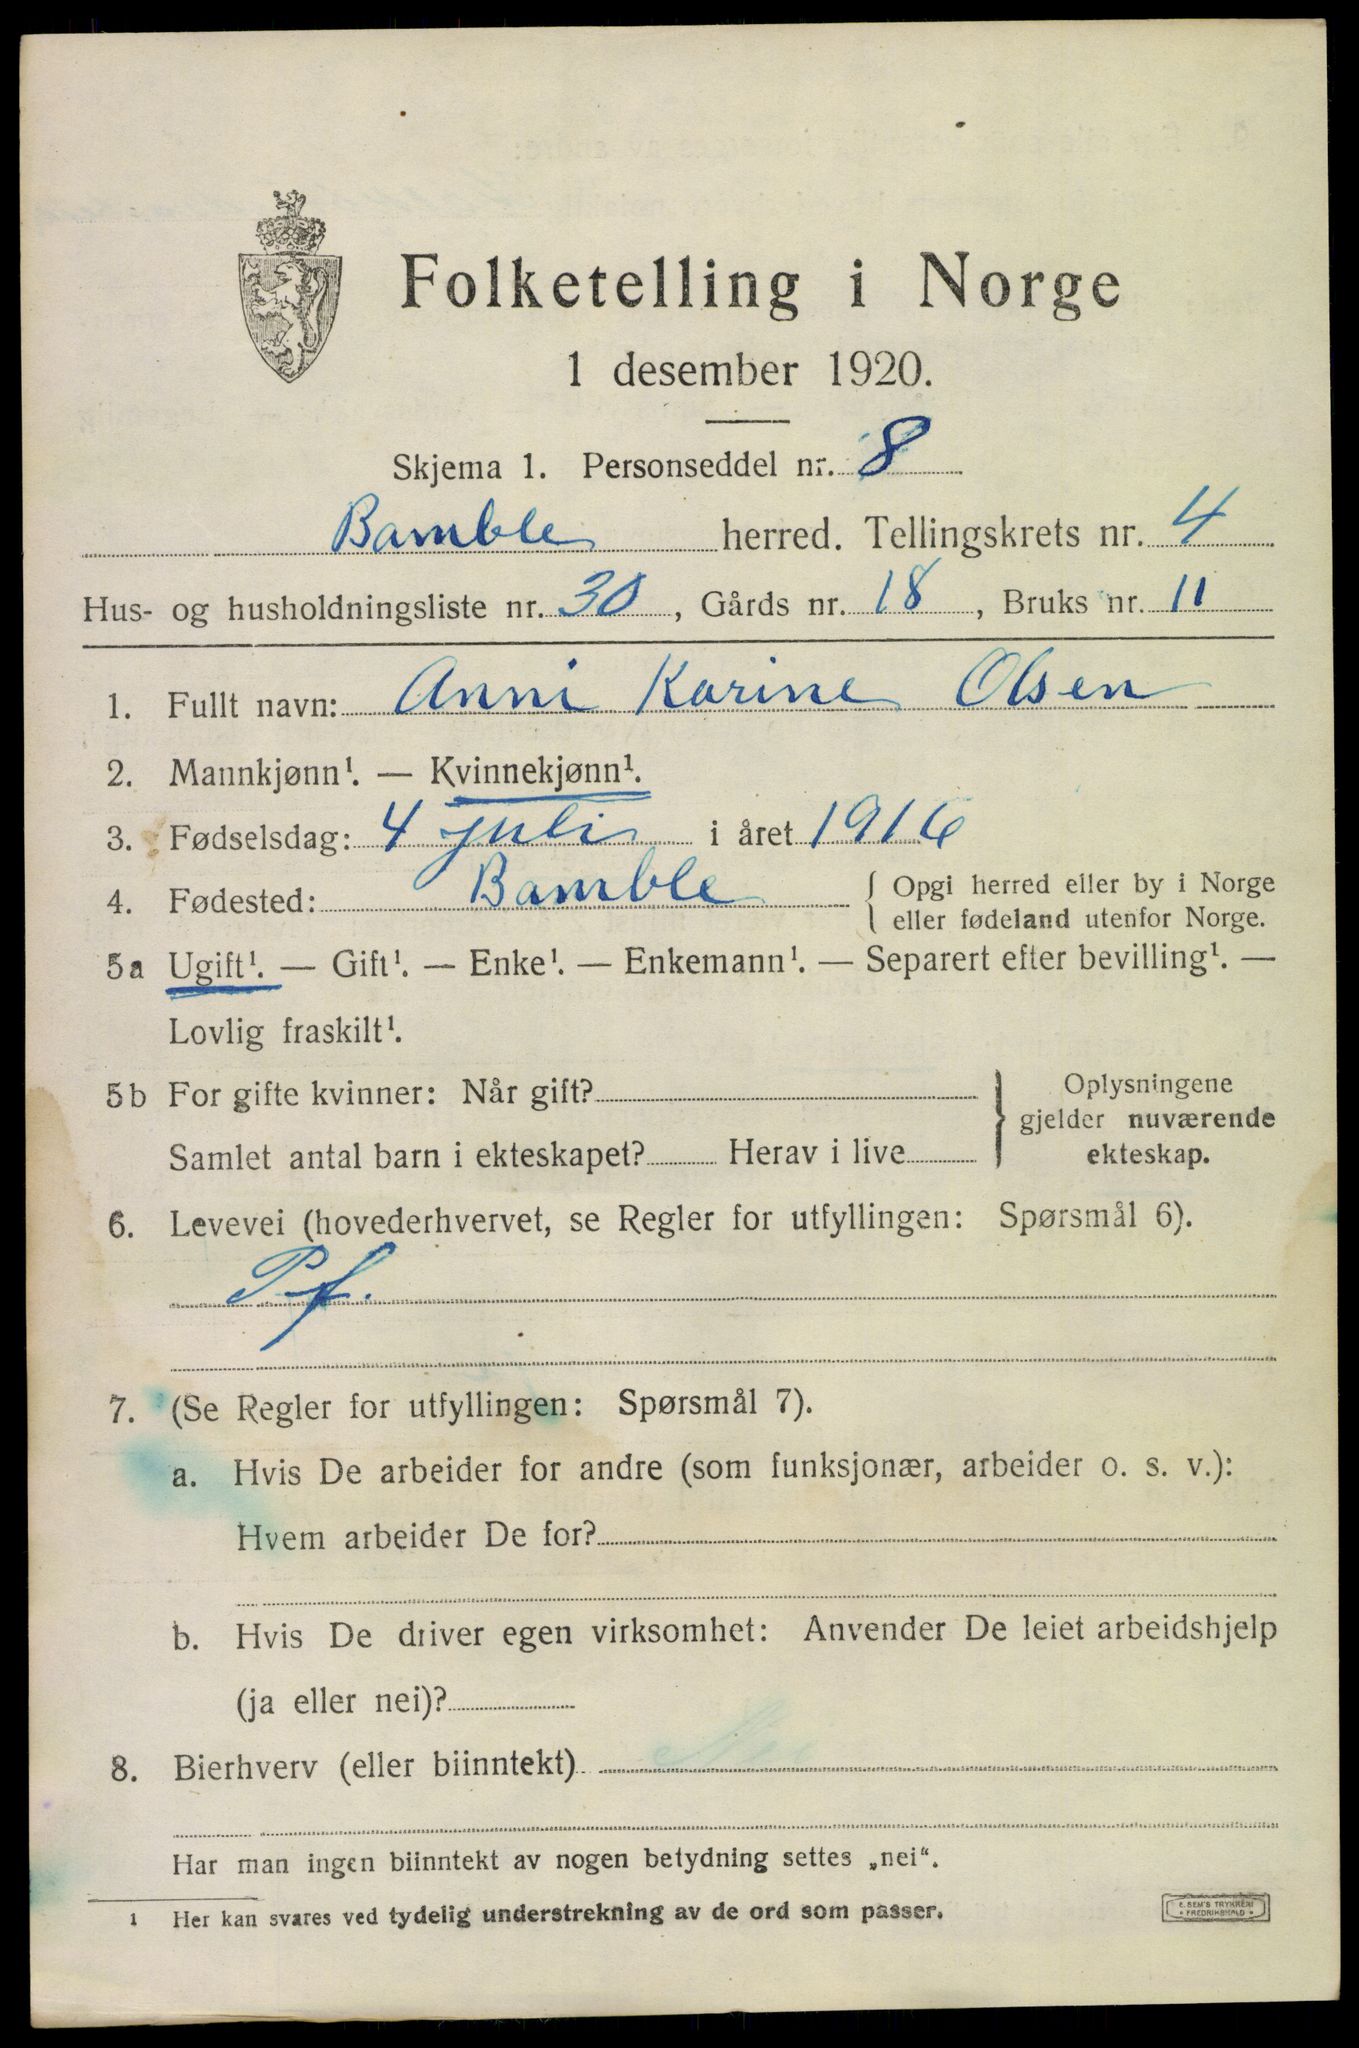 Folketelling i Norge
1 desember 1920.
Skjema 1. Personseddel nr. 8
Bamble herred. Tellingskrets nr. 4
Hus- og husholdningsliste nr. 30, Gårds nr. 18, Bruks nr. 11
1. Fullt navn: Anni Karine Olsen
2. Mannkjønn¹. — Kvinnekjønn¹.
3. Fødselsdag: 4 juli i året 1916
4. Fødested: Bamble { Opgi herred eller by i Norge
eller fødeland utenfor Norge.
5a Ugift¹. — Gift¹. — Enke¹. — Enkemann¹. — Separert efter bevilling¹. —
Lovlig fraskilt¹.
5b For gifte kvinner: Når gift? } Oplysningene
gjelder nuværende
Samlet antal barn i ekteskapet? Herav i live ekteskap.
6. Levevei (hovederhvervet, se Regler for utfyllingen: Spørsmål 6).
Pf.
7. (Se Regler for utfyllingen: Spørsmål 7).
a. Hvis De arbeider for andre (som funksjonær, arbeider o. s. v.):
Hvem arbeider De for?
b. Hvis De driver egen virksomhet: Anvender De leiet arbeidshjelp
(ja eller nei)?
8. Bierhverv (eller biinntekt) Nei
Har man ingen biinntekt av nogen betydning settes „nei“.
1 Her kan svares ved tydelig understrekning av de ord som passer.
E. SEM'S TRYKKERI
• FREDRIKSHALD •